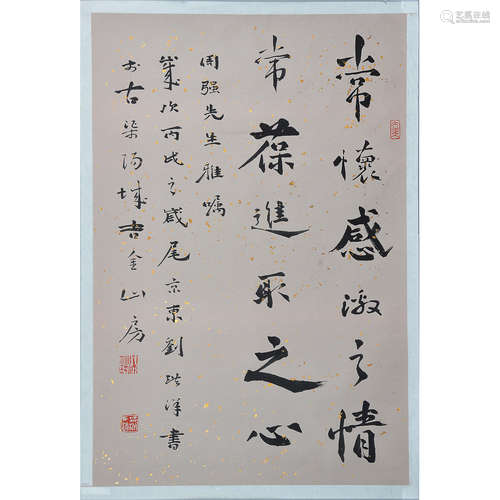 常懷感激之情
常葆進取之心
周强先生雅囑
歲次丙戌之歲尾京東劉洪洋書
於古渠陽城吉金山房